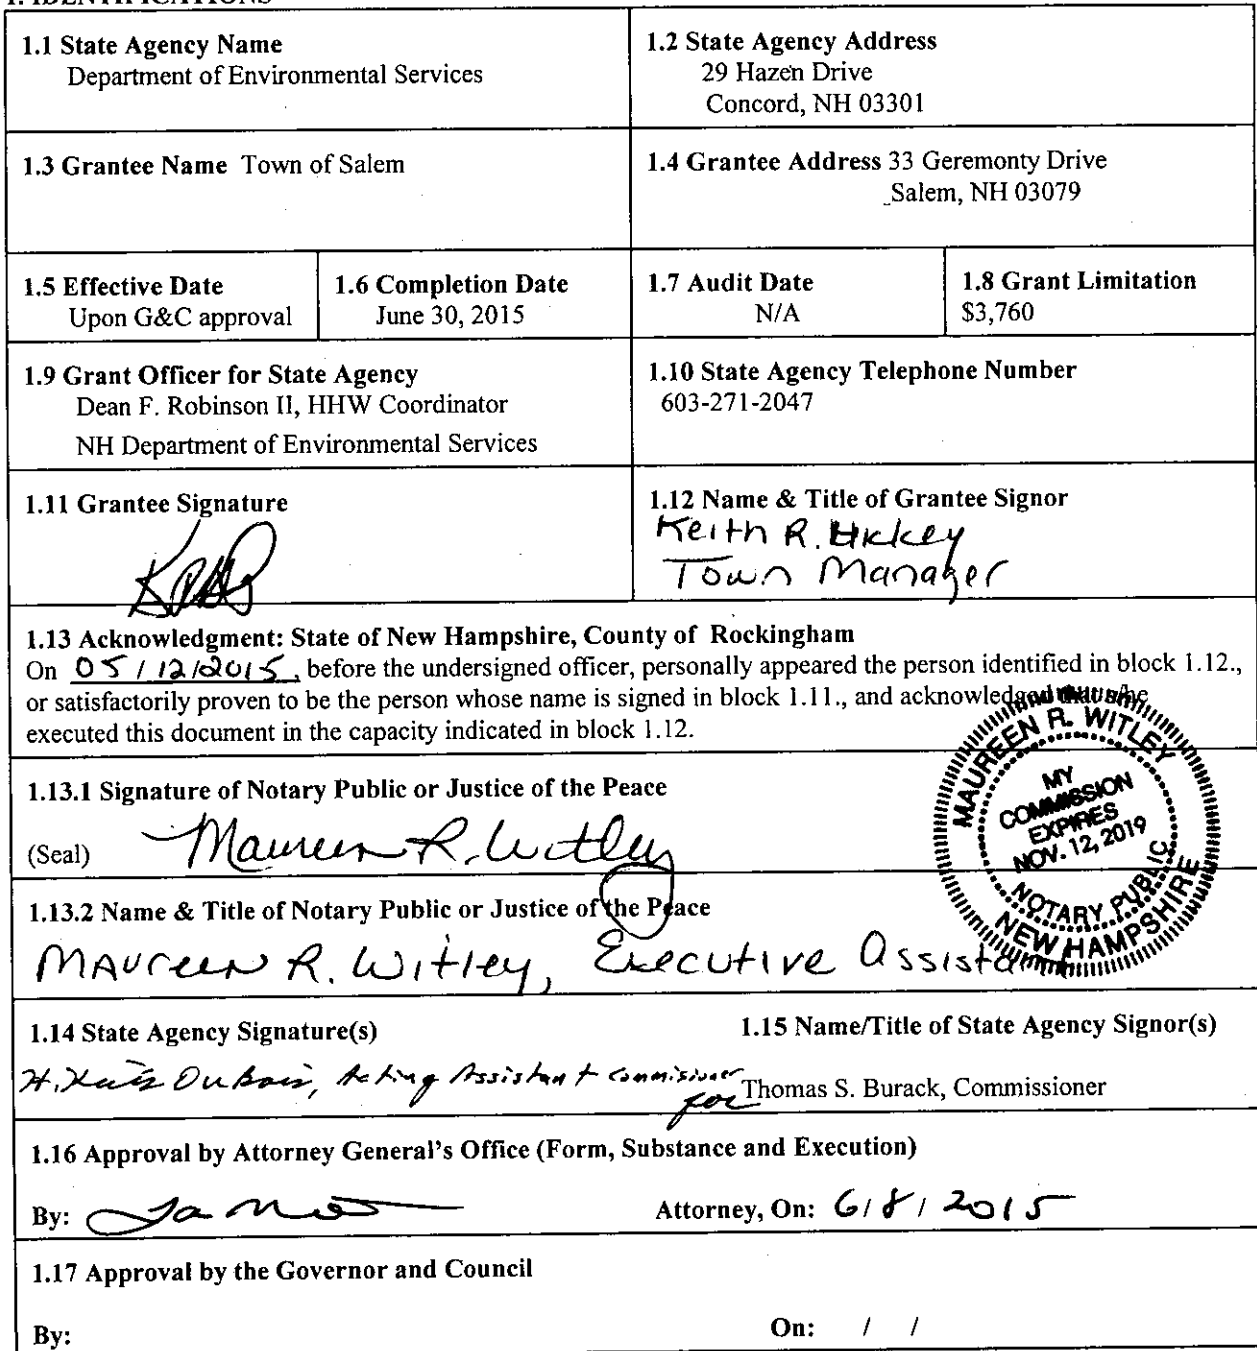 1.1 State Agency Name
Department of Environmental Services
1.2 State Agency Address
29 Hazen Drive
Concord, NH 03301
1.3 Grantee Name Town of Salem
1.4 Grantee Address 33 Geremonty Drive
Salem, NH 03079
1.5 Effective Date
Upon G&C approval
1.6 Completion Date
June 30, 2015
1.7 Audit Date
N/A
1.8 Grant Limitation
$3,760
1.9 Grant Officer for State Agency
Dean F. Robinson II, HHW Coordinator
NH Department of Environmental Services
1.10 State Agency Telephone Number
603-271-2047
1.11 Grantee Signature
1.12 Name & Title of Grantee Signor
Keith R. Hickey
Town Manager
1.13 Acknowledgment: State of New Hampshire, County of Rockingham
On 05/12/2015, before the undersigned officer, personally appeared the person identified in block 1.12.,
or satisfactorily proven to be the person whose name is signed in block 1.11., and acknowledged that s/he
executed this document in the capacity indicated in block 1.12.
MAUREEN R. WITLEY
MY
COMMISSION
EXPIRES
NOV. 12, 2019
NOTARY PUBLIC
NEW HAMPSHIRE
1.13.1 Signature of Notary Public or Justice of the Peace
(Seal) Maureen R. Witley
1.13.2 Name & Title of Notary Public or Justice of the Peace
Maureen R. Witley, Executive Assistant
1.14 State Agency Signature(s)
1.15 Name/Title of State Agency Signor(s)
Acting Assistant Commissioner
for Thomas S. Burack, Commissioner
1.16 Approval by Attorney General's Office (Form, Substance and Execution)
By:
Attorney, On: 6/8/2015
1.17 Approval by the Governor and Council
By:
On: / /